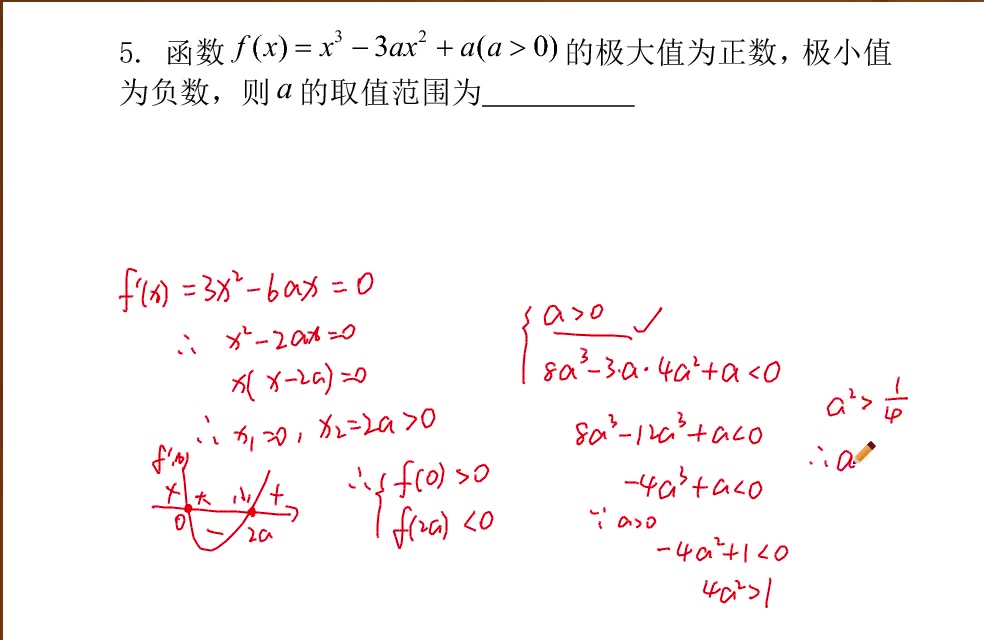 5. 函数 f(x) = x³ − 3ax² + a(a > 0) 的极大值为正数，极小值
为负数，则 a 的取值范围为__________
f'(x) = 3x² − 6ax = 0
∴ x² − 2ax = 0
x(x − 2a) = 0
∴ x₁ = 0, x₂ = 2a > 0
f'(x)
+ 大 小 +
0 − 2a
∴ { f(0) > 0
f(2a) < 0
{ a > 0 ✓
8a³ − 3·a·4a² + a < 0
8a³ − 12a³ + a < 0
−4a³ + a < 0
∵ a > 0
−4a² + 1 < 0
4a² > 1
a² > 1/4
∴ a